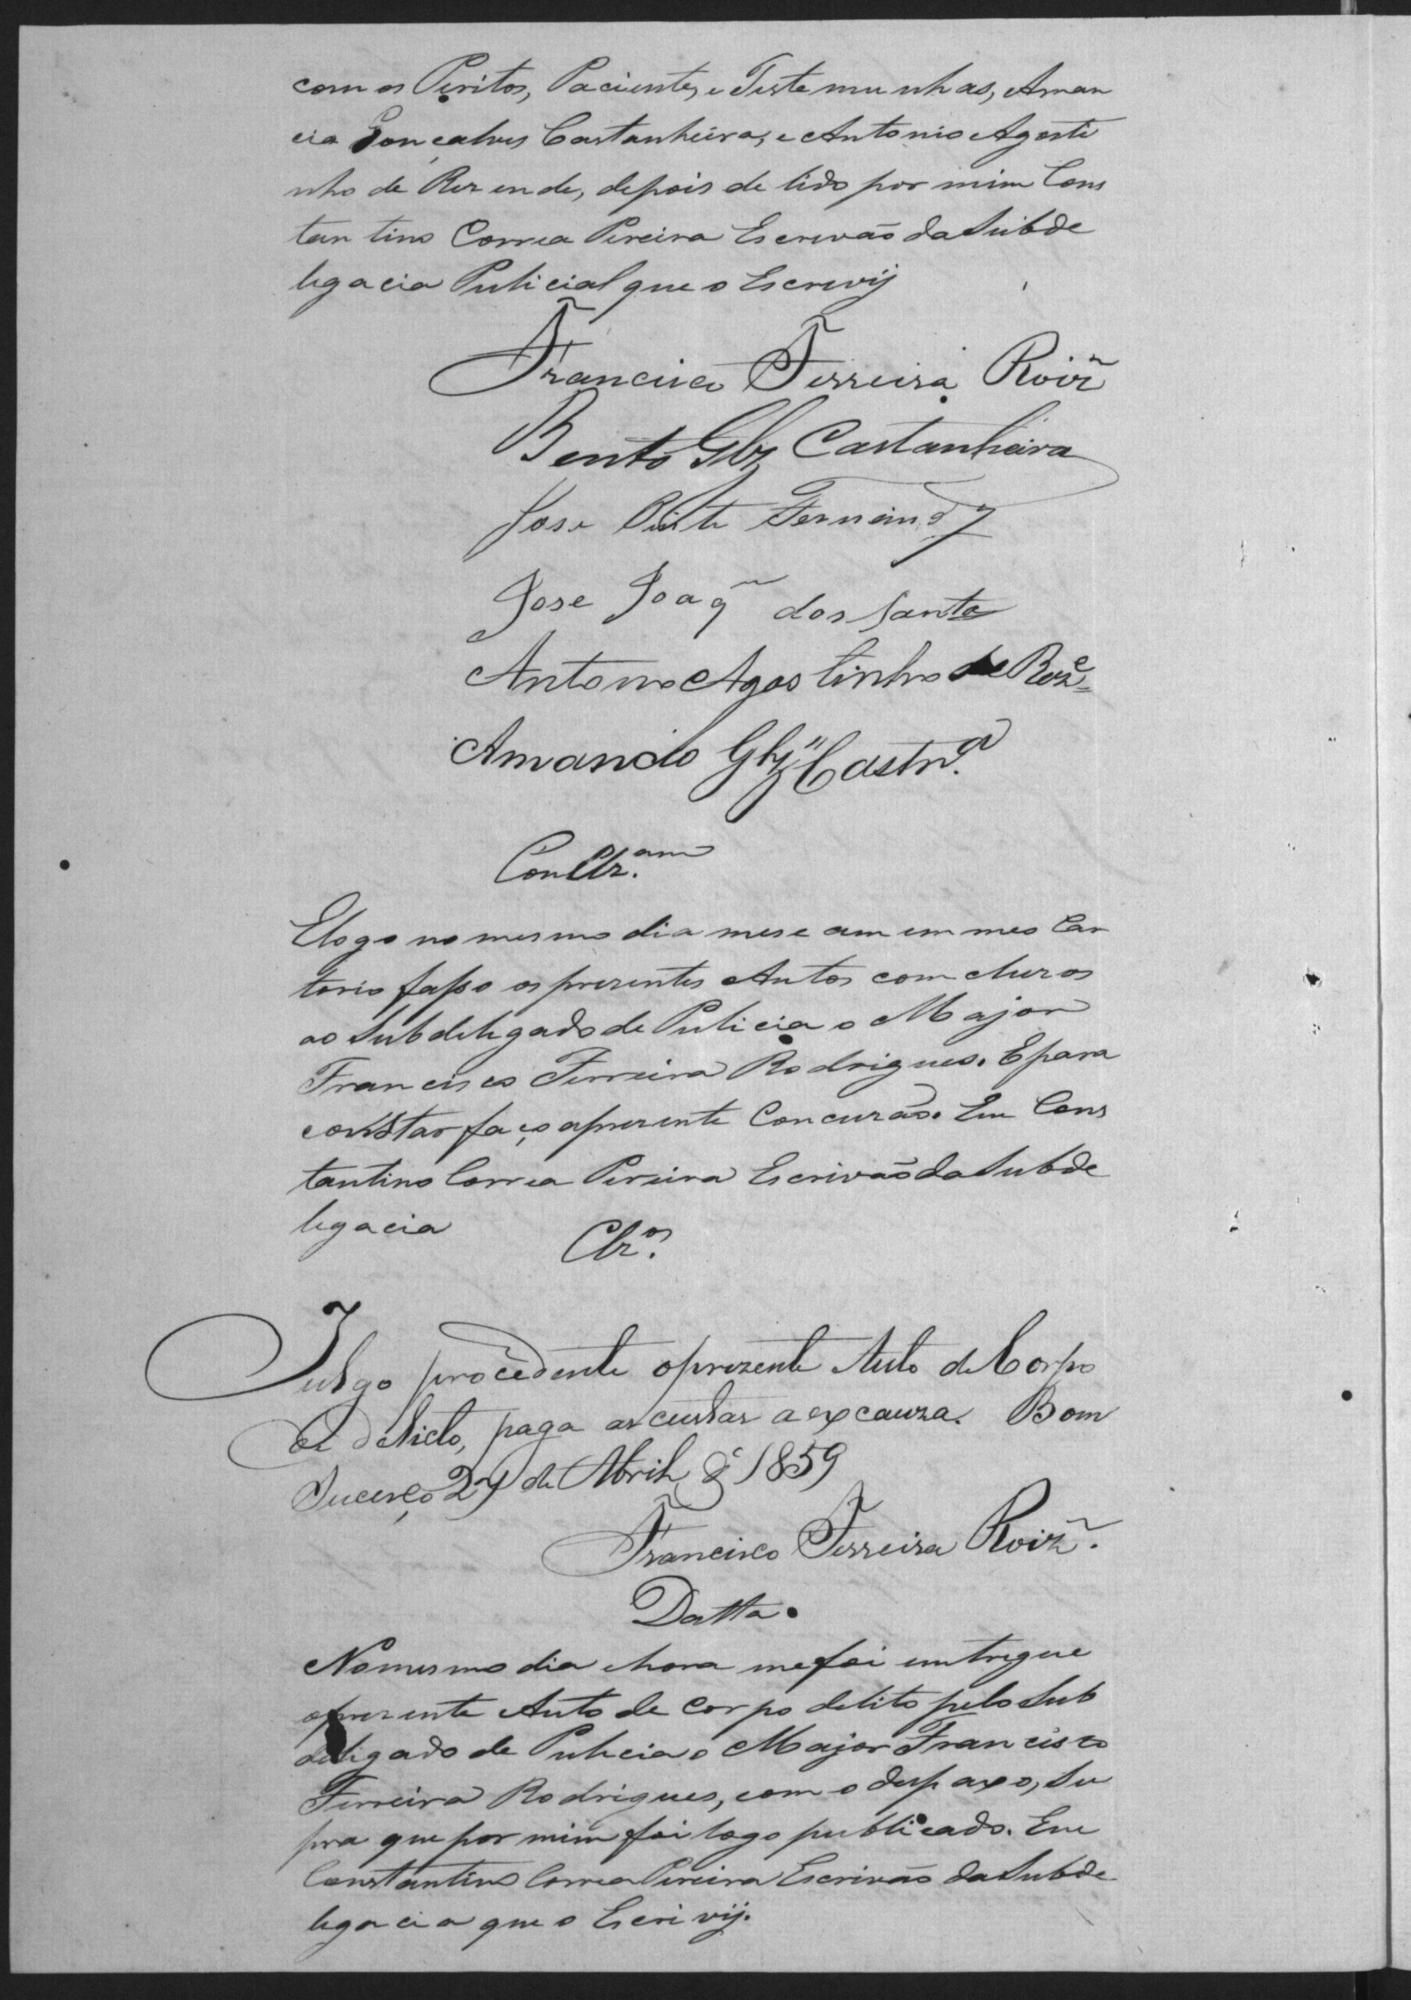 com os Peritos, Paciente, e Testemunhas, Aman
cio Gonçalves Castanheira, e Antonio Agosti
nho de Rezende, depois de lido por mim Cons
tantino Correa Pereira Escrivão da Subde
legacia Pulicial que o Escrevij
Francisco Ferreira Roiz
Bento Glz Castanheira
Jose Fernandz
Jose Joaqm dos Santos
Antonio Agostinho de Rezde
Amancio Glz Castnra
Conclzam
E logo no mesmo dia mes e ann em meo Car
torio fasso os prezentes Autos comcluzos
ao Subdelegado de Pulicia o Major
Francisco Ferreira Rodrigues. E para
constar faço a prezente Concuzão. Eu Cons
tantino Correa Pereira Escrivão da Subde
legacia
Clzos
Julgo procedente o prezente Auto de Corpo
de delicto, paga as custas a ex cauza. Bom
Sucerço 27 de Abril de 1859
Francisco Ferreira Roiz
Datta.
No mesmo dia e hora me foi emtregue
o prezente Auto de Corpo delito pelo Sub
deligado de Pulicia o Major Francisco
Ferreira Rodrigues, com o despaxo, Su
pra que por mim foi logo publicado. Eu
Constantino Correa Pereira Escrivão da Subde
legacia que o Escrivij.